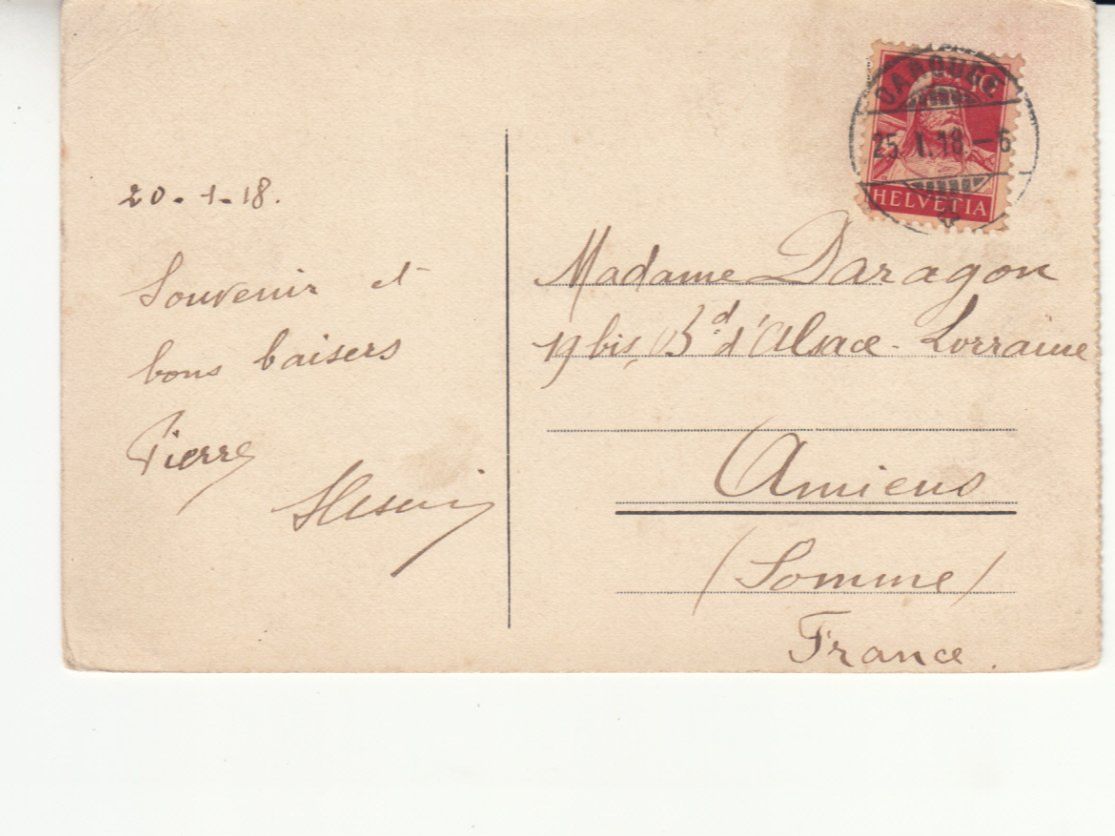 20-1-18.
Souvenir et
bons baisers
Pierre
CAROUGE
25.I.18-6
HELVETIA
Madame Daragon
19 bis, Bd d'Alsace-Lorraine
Amiens
(Somme)
France.